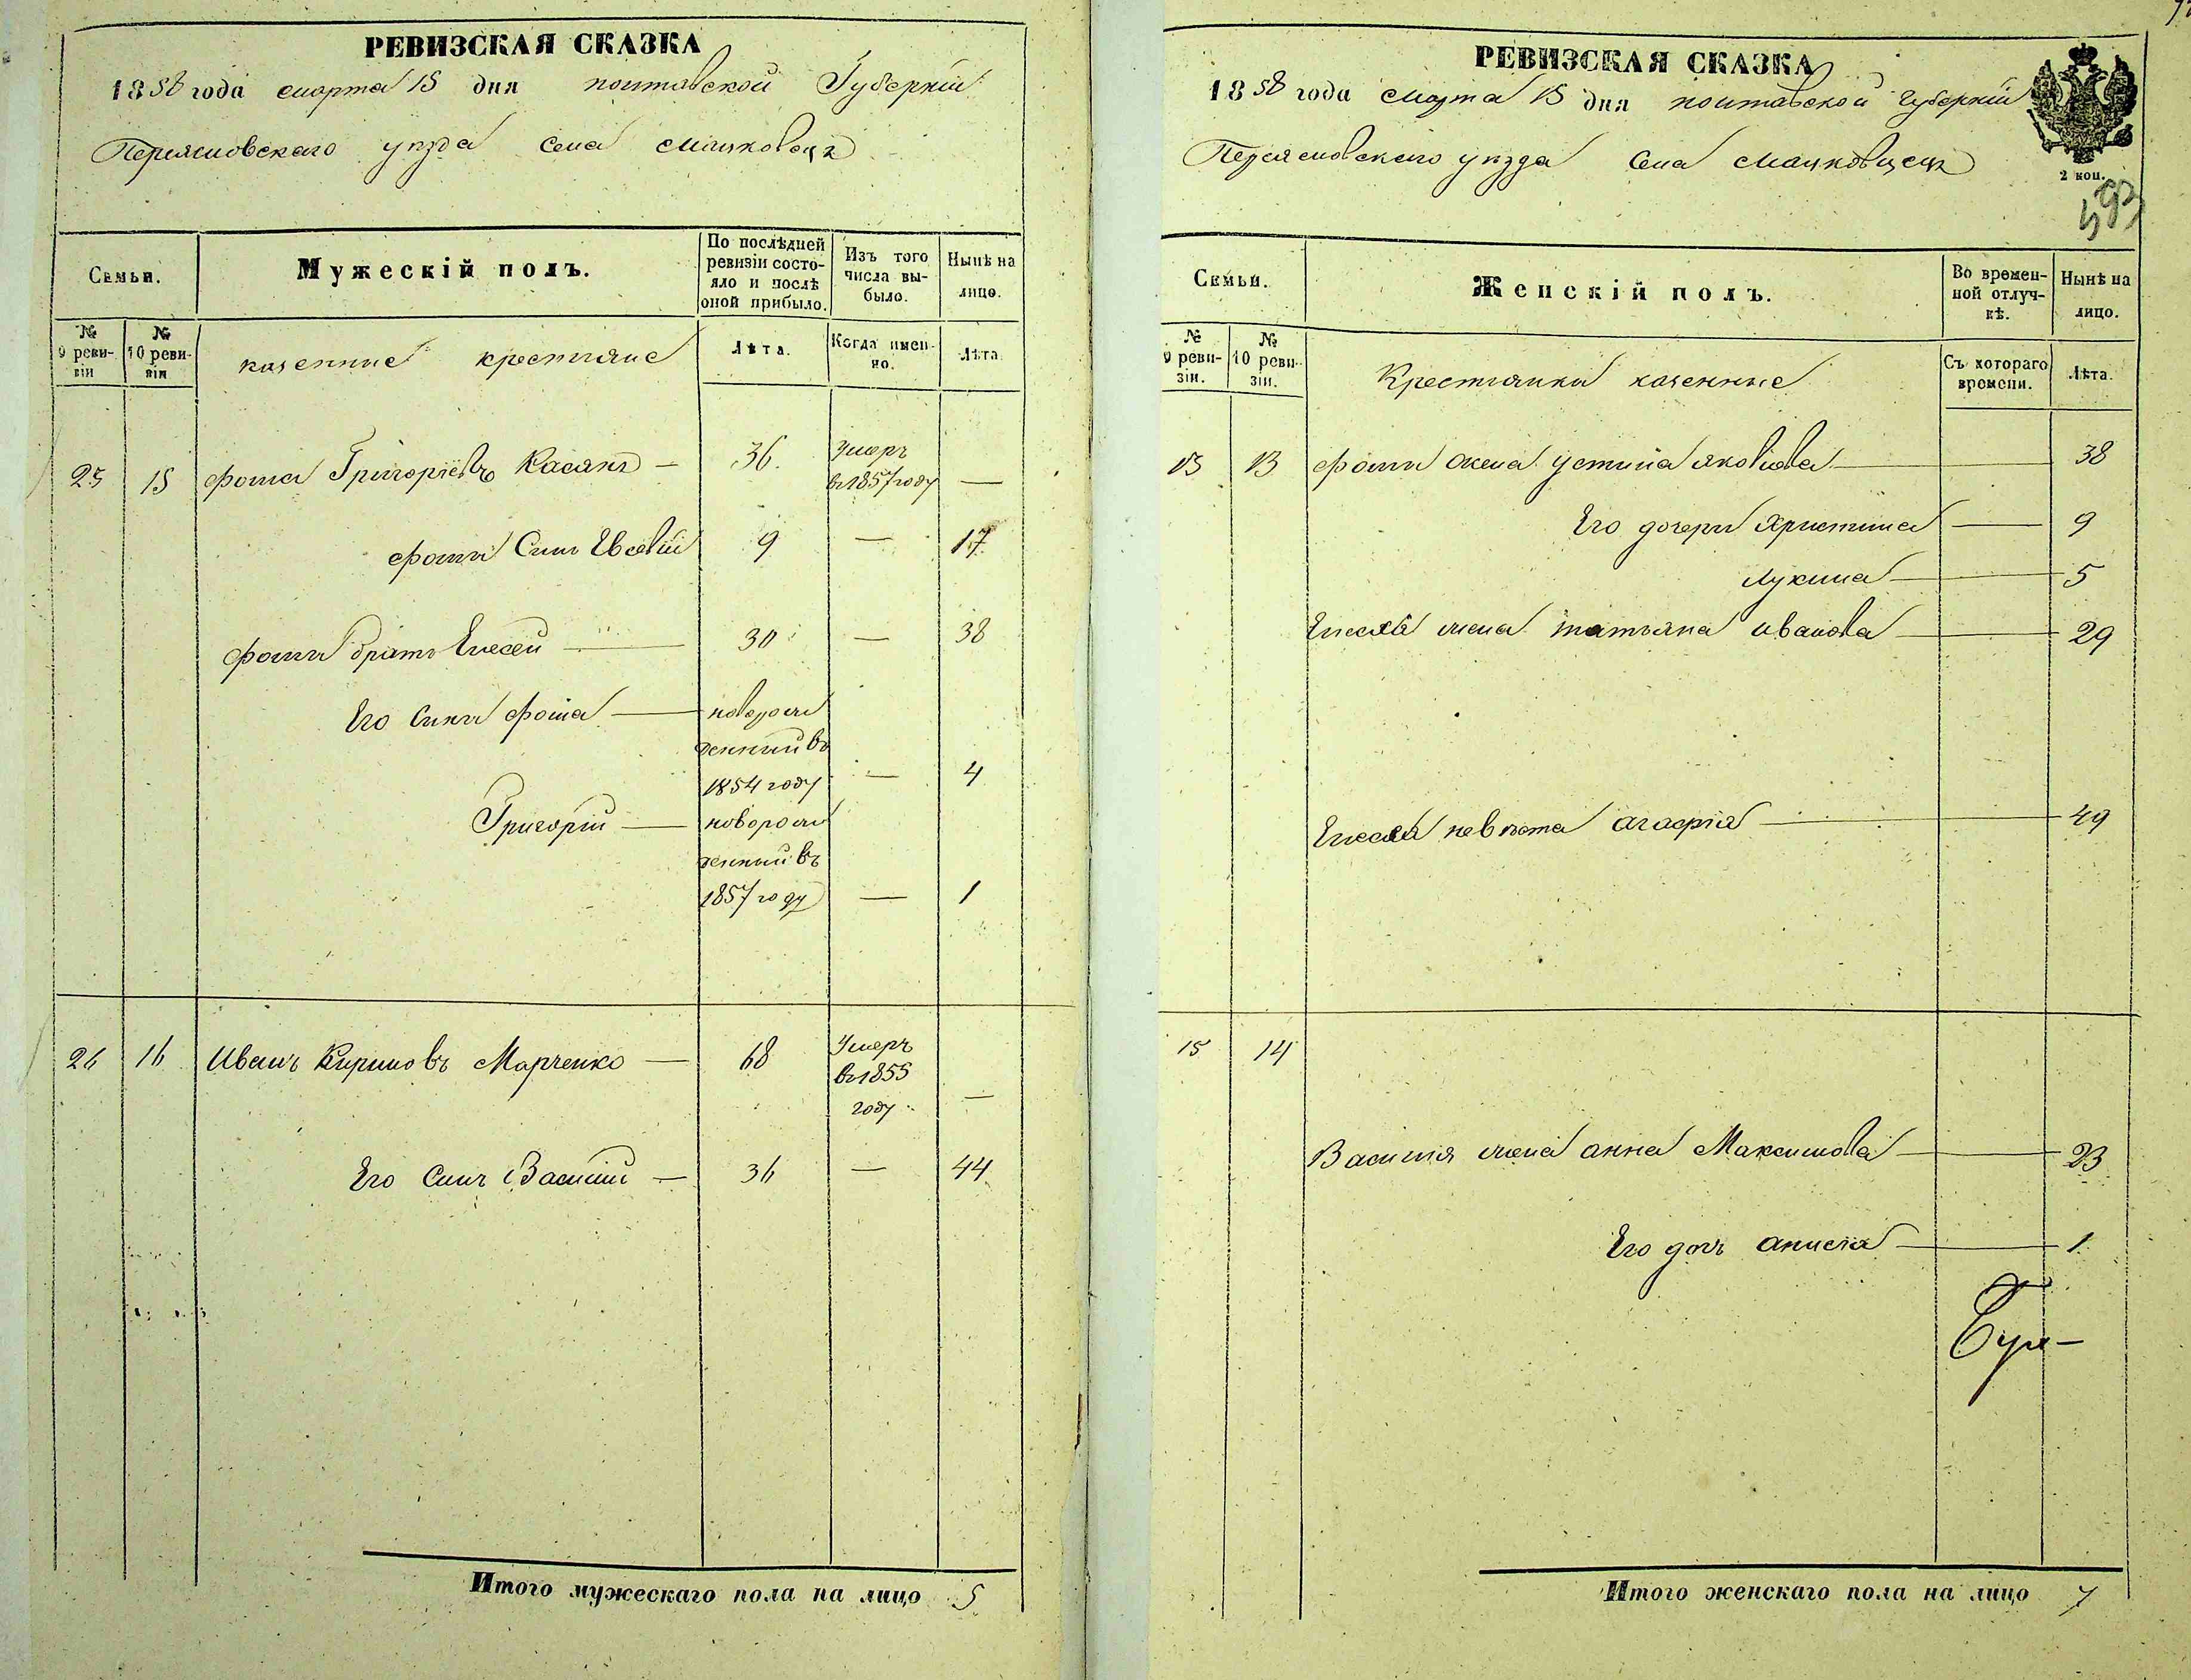 РЕВИЗСКАЯ СКАЗКА
1858 года марта 15 дня полтавской Губерніи
Переясловскаго уѣзда села
Семьи.
Мужескій полъ.
По послѣдней ревизіи состояло и послѣ оной прибыло.
Изъ того числа выбыло.
Нынѣ на лицо.
№ 9 ревизіи
№ 10 ревизіи
казенные крестьяне
Лѣта.
Когда именно.
Лѣта.
25 15 фома Григоріевъ Касянъ — 36. Умеръ в 1857 году —
фомы Синъ Евсевій 9 — 17
фомы братъ Елесей — 30 — 38
Его Сины фома — новорожденный въ 1854 году — 4
Григорій — новорожденный въ 1857 году — 1
26 16 Иванъ Кириловъ Марченко — 68 Умеръ в 1855 году —
Его Синъ Василий — 36 — 44
Итого мужескаго пола на лицо 5
РЕВИЗСКАЯ СКАЗКА
1858 года марта 15 дня полтавской губерніи
Переясловскаго уѣзда села
2 коп.
Семьи.
Женскій полъ.
Во временной отлучкѣ.
Нынѣ на лицо.
№ 9 ревизіи.
№ 10 ревизіи.
Крестьянки казенные
Съ котораго времени.
Лѣта.
13 13 фомы жена устина яковлева — 38
Его дочери Христина — 9
Лукина — 5
жена татьяна иванова — 29
невѣста агафія — 49
15 14
Василия жена анна Максимова — 23
Его дочъ анисія — 1
Итого женскаго пола на лицо 7